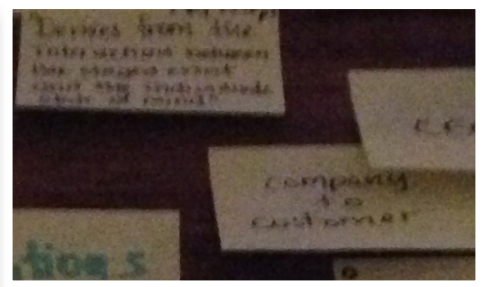 Derives from the
interaction between
the staged event
and the individual's
state of mind"
company
to
customer
tions